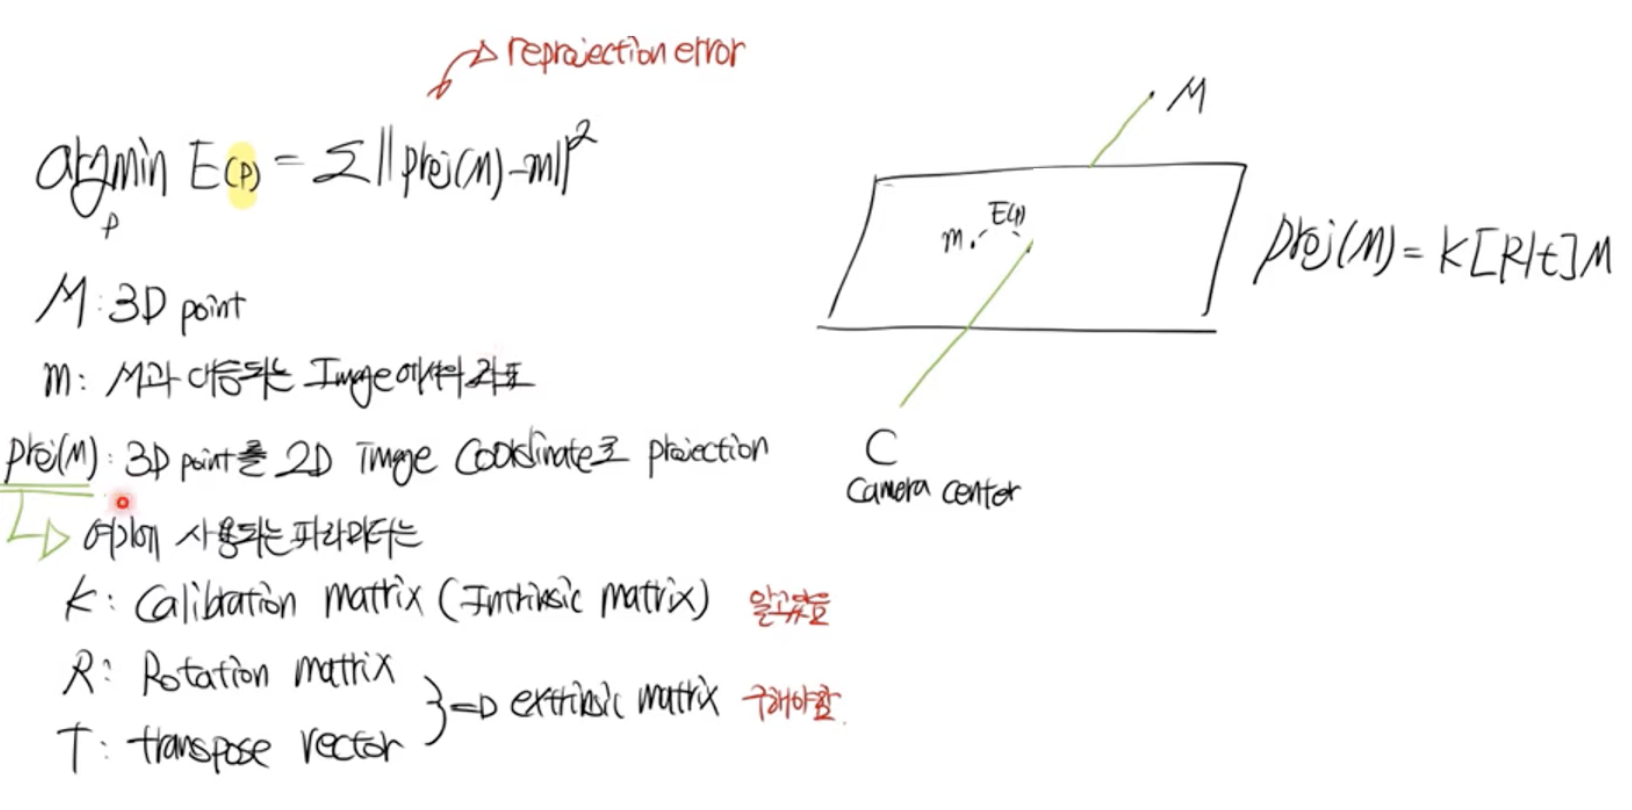 reprojection error
argmin E(P) = Σ||proj(M)-m||²
P
M: 3D point
m: M과 대응되는 Image에서의 좌표
proj(M): 3D point를 2D Image Coordinate로 projection
여기에 사용되는 파라미터는
K: Calibration matrix (Intrinsic matrix) 알고있음
R: Rotation matrix
T: transpose vector
} => extrinsic matrix 구해야함.
M
E(P)
m.
proj(M) = K[R|t]M
C
Camera center